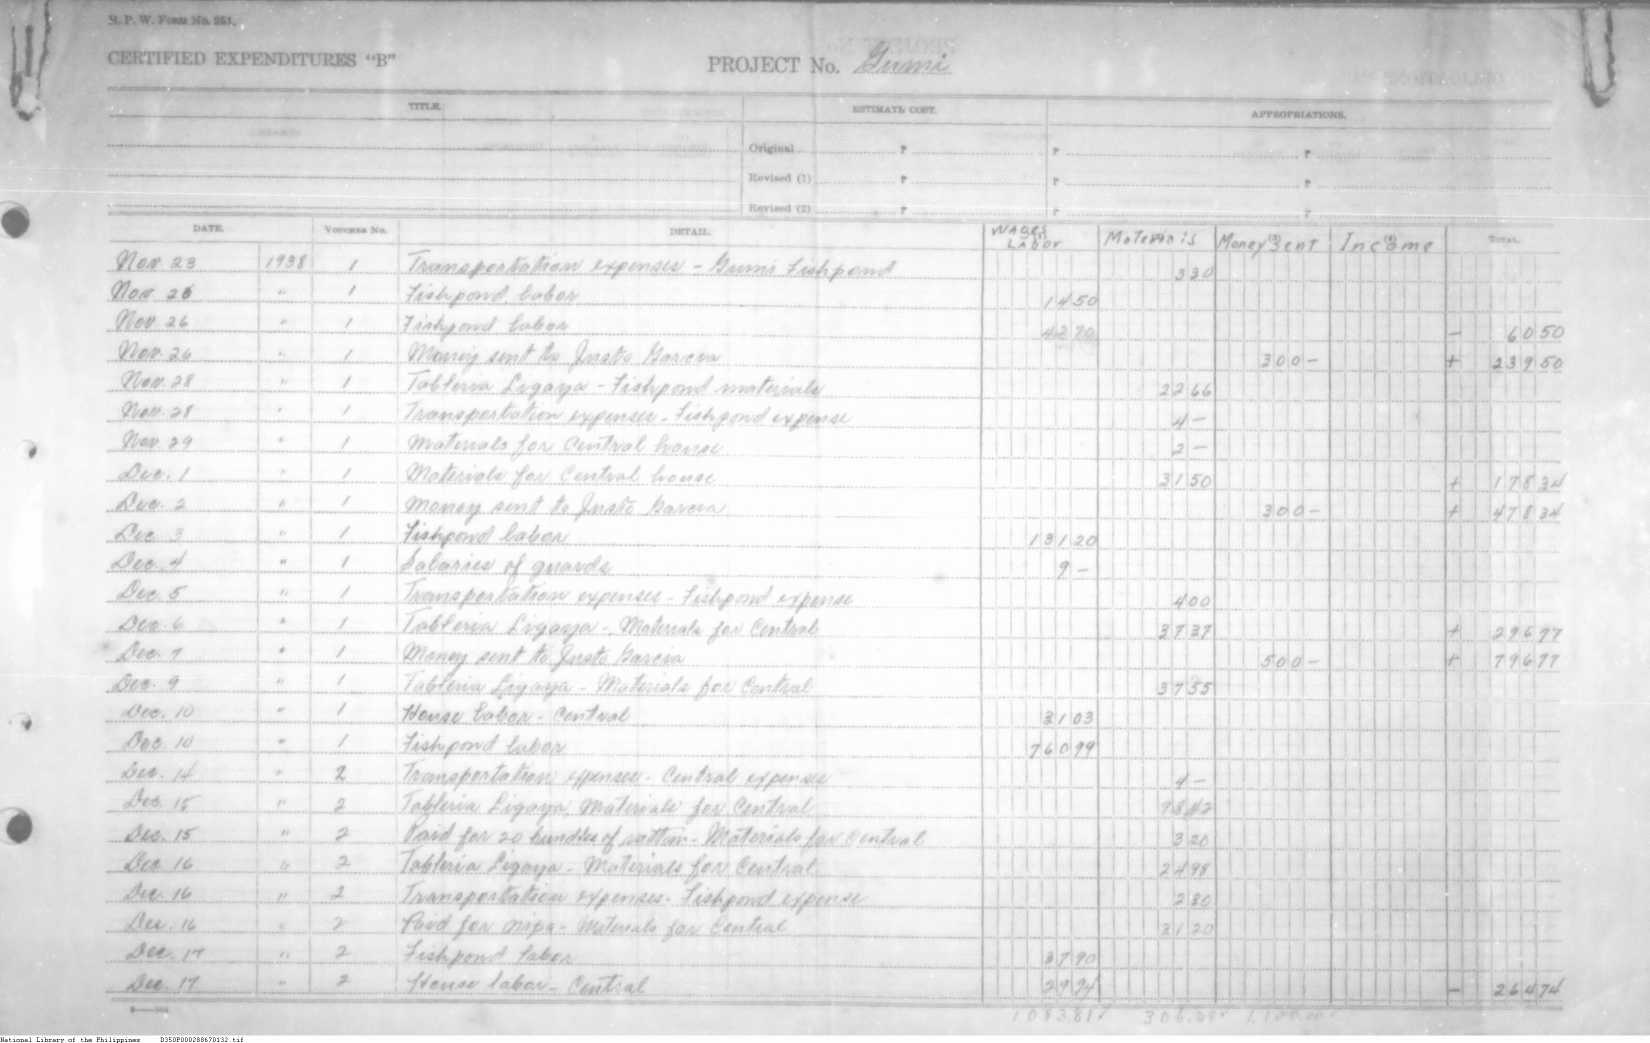 B. P. W. Form No. 251.
CERTIFIED EXPENDITURES "B"
PROJECT No. Gumi
TITLE. ESTIMATE COST. APPROPRIATIONS.
Original ₱ ₱ ₱
Revised (1) ₱ ₱ ₱
Revised (2) ₱ ₱ ₱
DATE. VOUCHER No. DETAIL. WAGES LABOR Materials Money Sent Income TOTAL.
Nov. 23 1938 1 Transportation expenses - Gumi Fishpond 3 30
Nov. 26 " 1 Fishpond labor 14 50
Nov. 26 " 1 Fishpond labor 42 70 - 60 50
Nov. 26 " 1 Money sent to Justo Garcia 300 - + 239 50
Nov. 28 " 1 Tableria Ligaya - Fishpond materials 22 66
Nov. 28 " 1 Transportation expenses - Fishpond expense 4 -
Nov. 29 " 1 Materials for Central house 2 -
Dec. 1 " 1 Materials for Central house 31 50 + 178 34
Dec. 2 " 1 Money sent to Justo Garcia 300 - + 478 34
Dec. 3 " 1 Fishpond labor 131 20
Dec. 4 " 1 Salaries of guards 9 -
Dec. 5 " 1 Transportation expenses - Fishpond expense 4 00
Dec. 6 " 1 Tableria Ligaya - Materials for Central 37 37 + 296 77
Dec. 7 " 1 Money sent to Justo Garcia 500 - + 796 77
Dec. 9 " 1 Tableria Ligaya - Materials for Central 37 55
Dec. 10 " 1 House labor - Central 31 03
Dec. 10 " 1 Fishpond labor 760 99
Dec. 14 " 2 Transportation expenses - Central expenses 4 -
Dec. 15 " 2 Tableria Ligaya, Materials for Central 98 42
Dec. 15 " 2 Paid for 20 bundles of rattan - Materials for Central 3 20
Dec. 16 " 2 Tableria Ligaya - Materials for Central 24 98
Dec. 16 " 2 Transportation expenses - Fishpond expense 2 80
Dec. 16 " 2 Paid for nipa - Materials for Central 31 20
Dec. 17 " 2 Fishpond labor 37 90
Dec. 17 " 2 House labor - Central 29 94 - 264 74
National Library of the Philippines D350P000288670132.tif